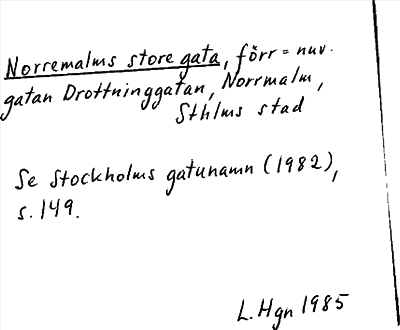 Norremalms store gata, förr = nuv.
gatan Drottninggatan, Norrmalm,
Sthlms stad
Se Stockholms gatunamn (1982),
s. 149.
L. Hgn 1985